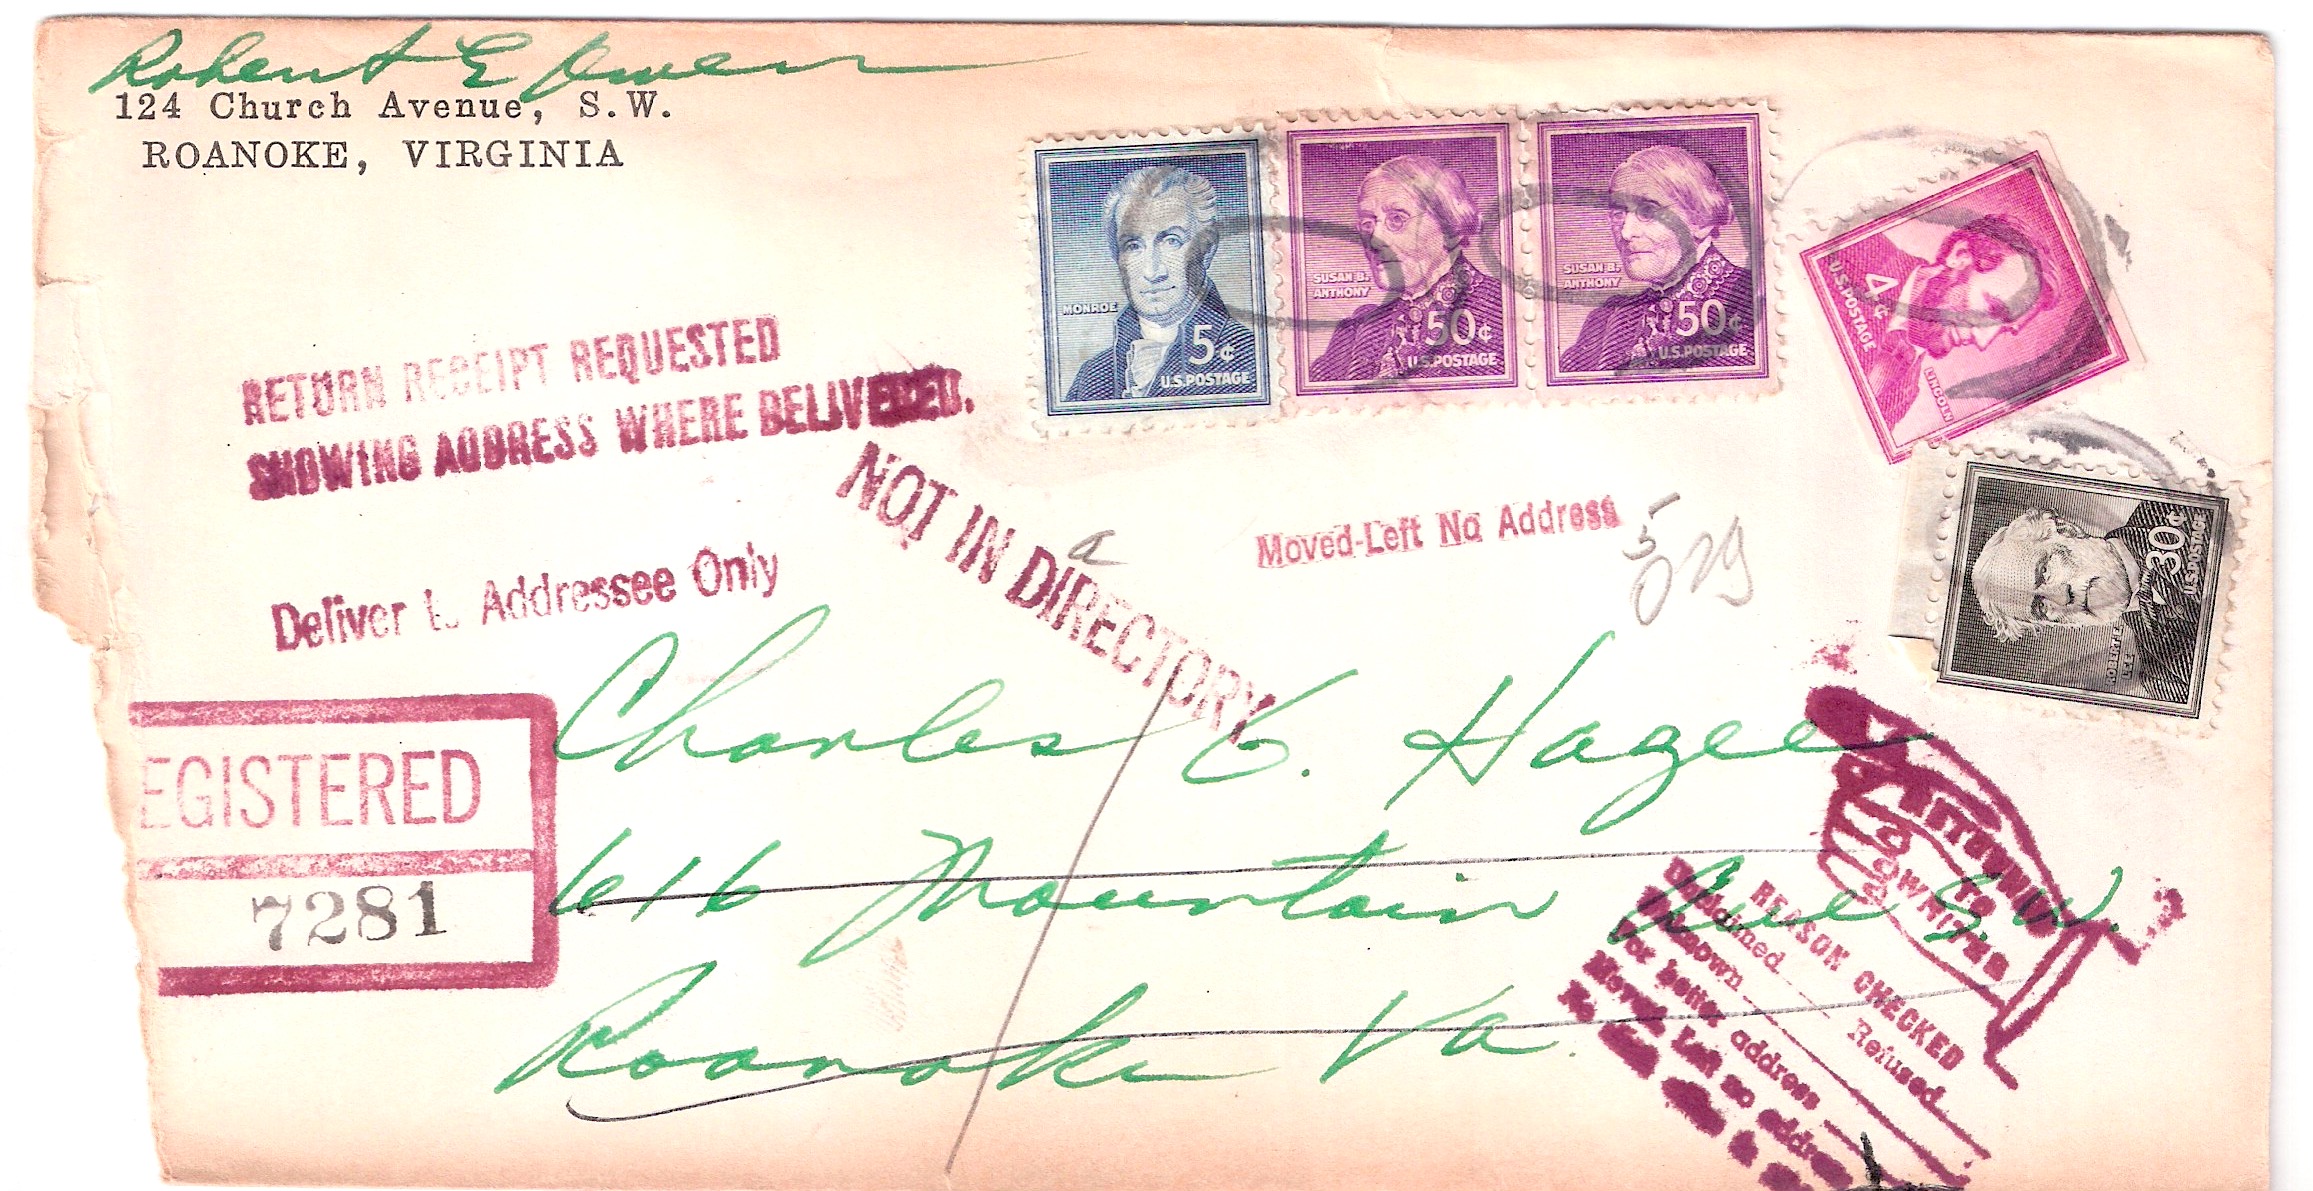 Robert E Owen
124 Church Avenue, S.W.
ROANOKE, VIRGINIA
MONROE
5¢
U.S.POSTAGE
SUSAN B.
ANTHONY
50¢
U.S.POSTAGE
SUSAN B.
ANTHONY
50¢
U.S.POSTAGE
4¢
U.S.POSTAGE
LINCOLN
30¢
U.S.POSTAGE
ROBERT E.
LEE
RETURN RECEIPT REQUESTED
SHOWING ADDRESS WHERE DELIVERED.
NOT IN DIRECTORY
Moved-Left No Address
Deliver Addressee Only
EGISTERED
7281
Charles E. Hagee
616 Mountain Ave S.W.
Roanoke Va.
TO
WRITER
REASON CHECKED
Refused
Unknown
For better address
Moved, Left no address